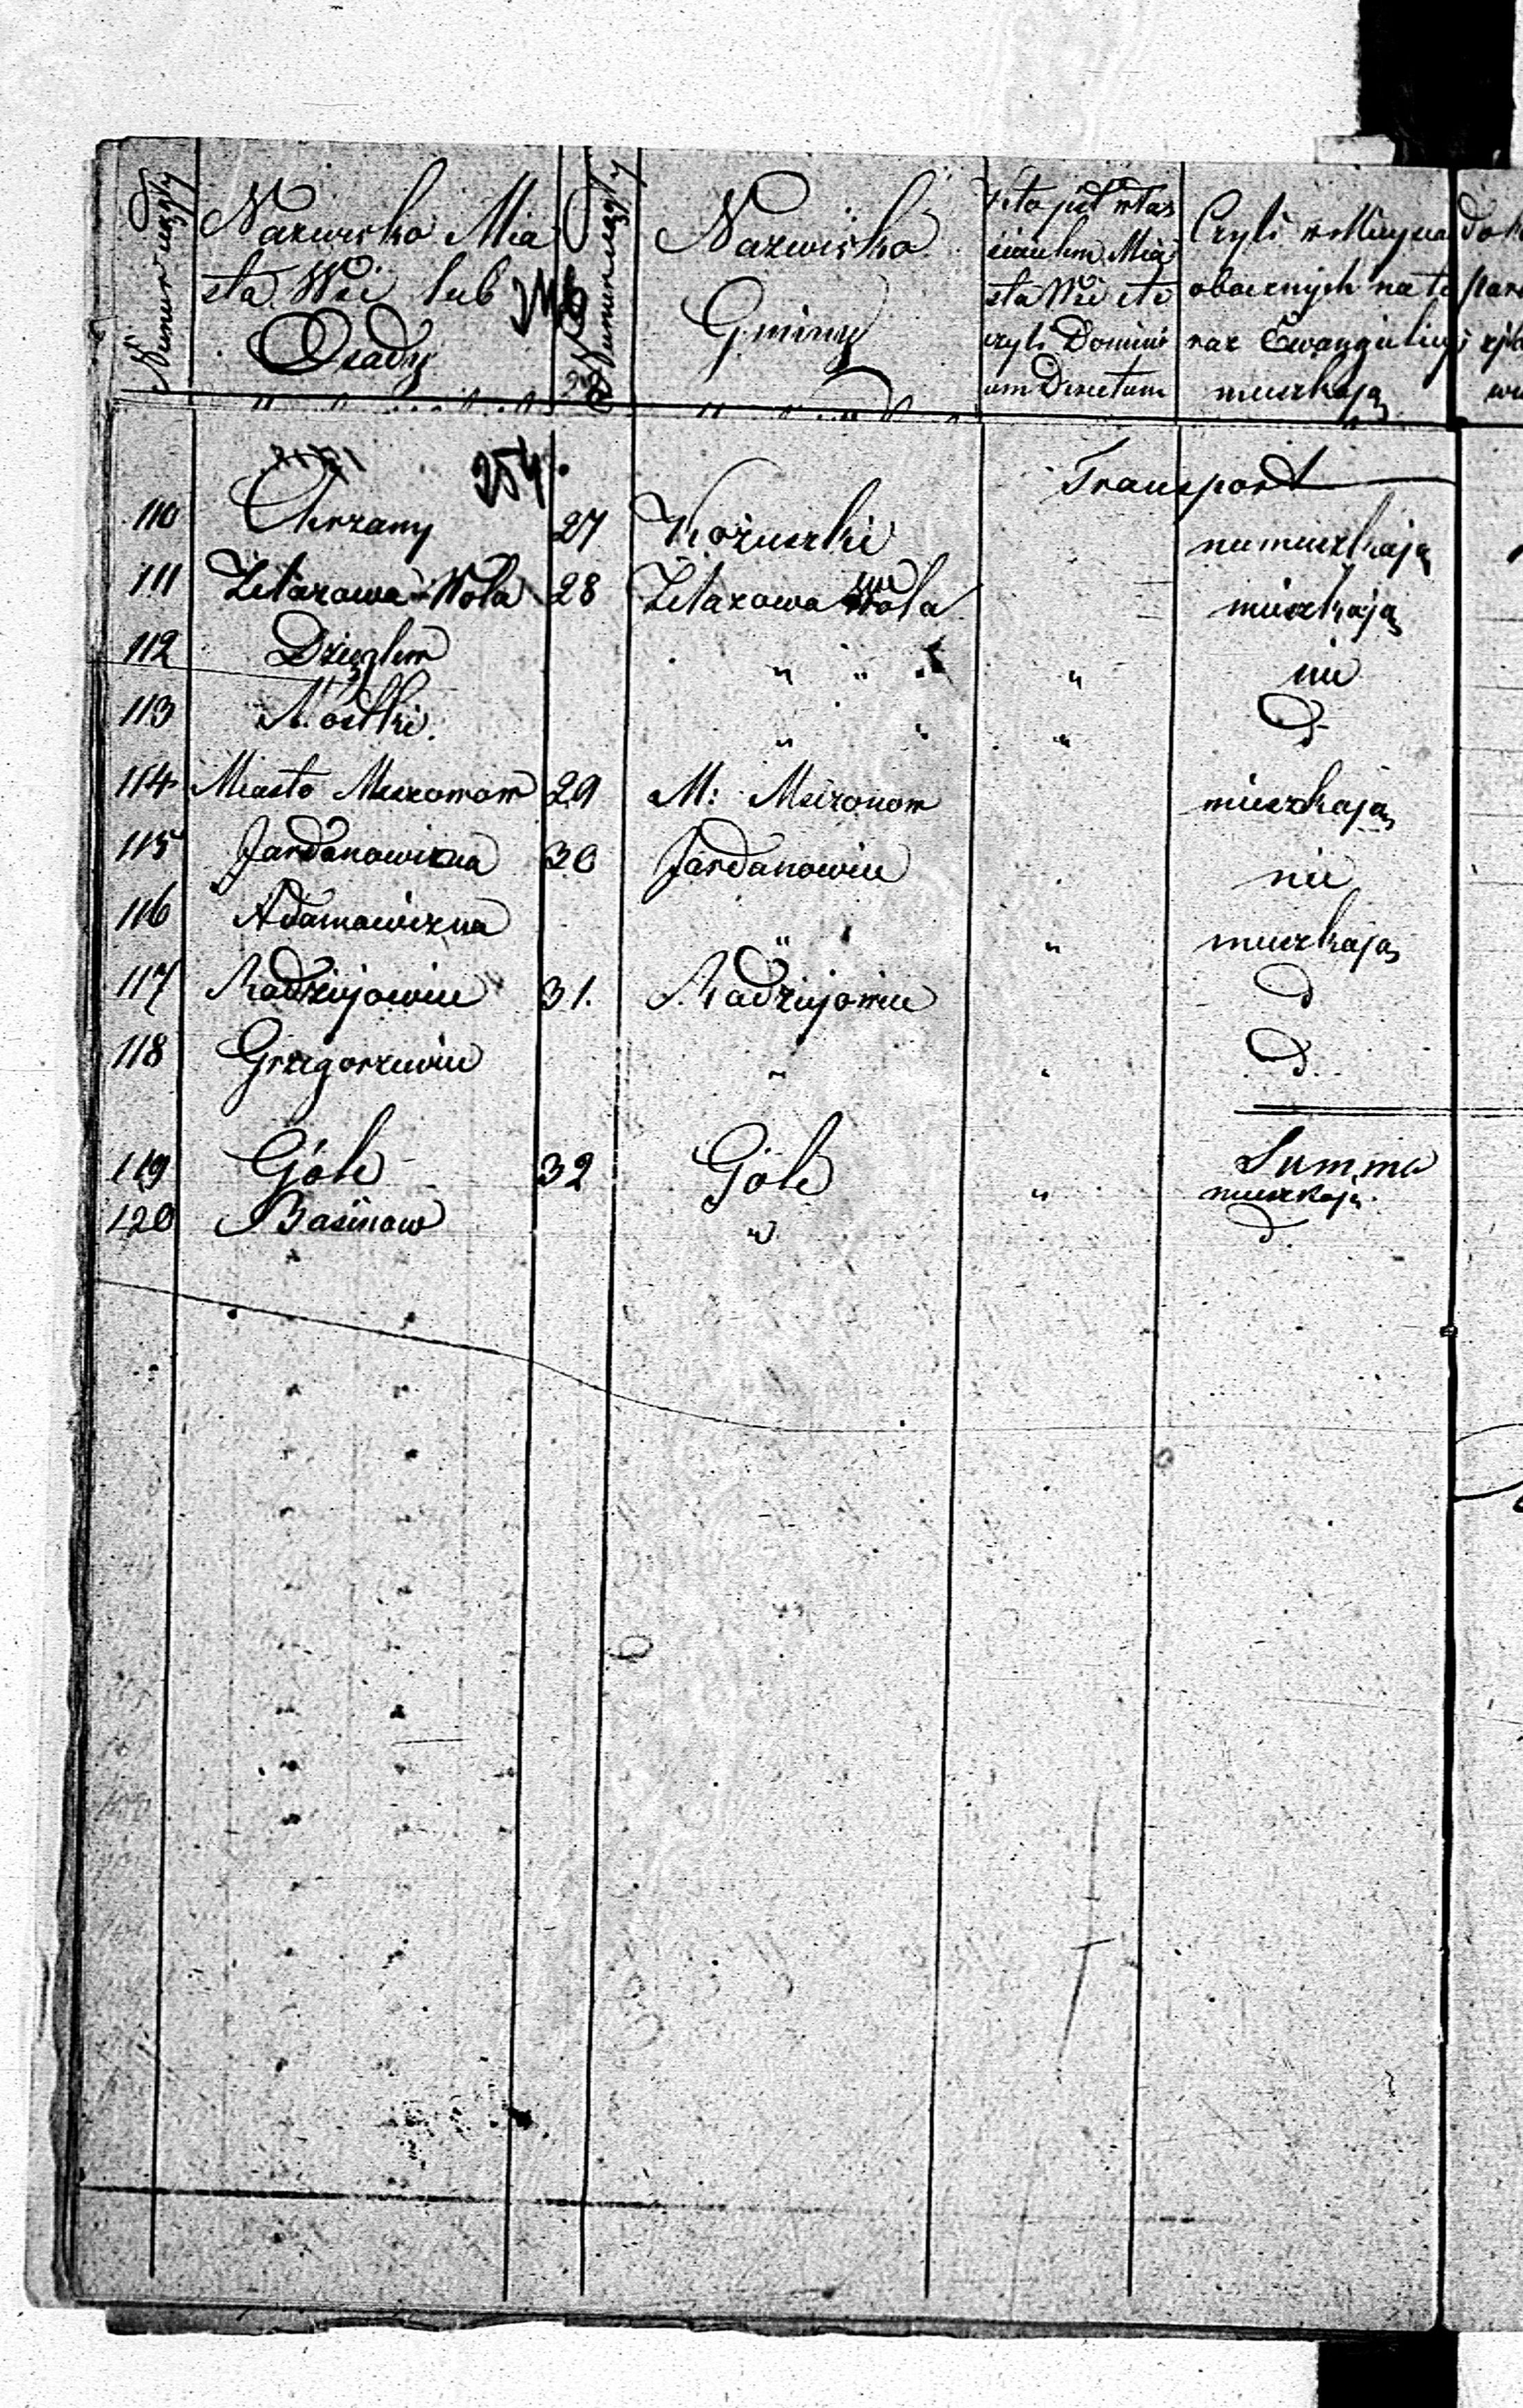 Numer ciągły
Nazwisko Mia
sta Wsi lub
Osady
Numer ciągły
Nazwisko
Gminy
Kto jest włas
cicielem Mia
sta Wsi etc
czyli Domini
um Directum
Czyli w Miejscach
obocznych na te
raz Ewangelicy
mieszkają
254
Transport
110 Chrzany 27 Kożuszki niemieszkają
111 Żelazowa Wola 28 Żelazowa Wola mieszkają
112 " " " nie
113 " " d
114 Miasto Mszczonow 29 M: Mszczonow mieszkają
115 Jordanowizna 30 Jordanowice nie
116 Adamowizna " " mieszkają
117 Radziejowice 31. Radziejowice d
118 Grzegorzewice " " d.
Summa
119 Góle 32 Góle " mieszkają
120 Basinow " " d.